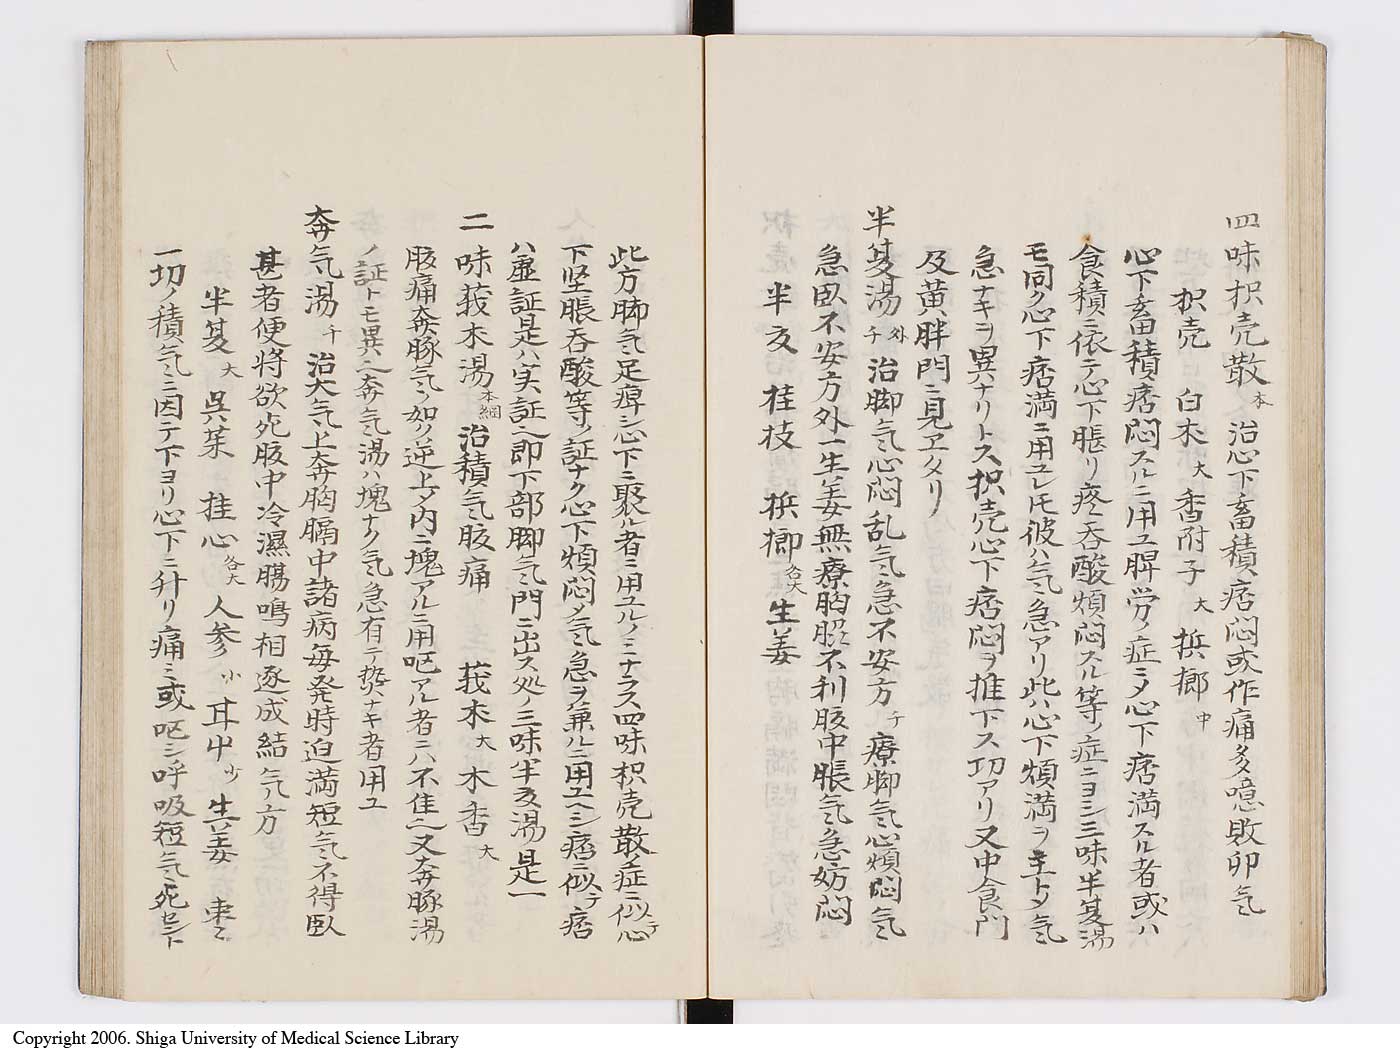 四味枳売散本 治心下畜積痞悶或作痛多噫敗卵气
枳売 白朮大 香附子大 梹榔中
心下畜積痞悶スルニ用ユ脾労ノ症ニメ心下痞満スル者或ハ
食積ニ依テ心下脹リ疼呑酸煩悶スル等ノ症ニヨシ三味半夏湯
モ同ク心下痞満ニ用ユレ𪜈彼ハ气急アリ此ハ心下煩満ヲ主トメ气
急ナキヲ異ナリトス枳売心下痞悶ヲ推下ス功アリ又中食門
及黄胖門ニ見ヱタリ
半夏湯外千 治脚气心悶乱气急不安方千 療脚气心煩悶气
急臥不安方外一生姜無療胸膈不利腹中脹气急妨悶
枳売 半夏 桂枝 梹榔各大 生姜
此方脚气足痺シ心下ニ聚ル者ニ用ユルノミナラス四味枳売散ノ症ニ似テ心
下坚脹呑酸等ノ証ナク心下煩悶ノ气急ヲ兼ルニ用ユヘシ痞ニ似テ痞
ハ虚証是ハ実証也即下部脚气門ニ出ス処ノ三味半夏湯是一
二味莪朮湯本綱 治積气腹痛 莪朮大 木香大
腹痛奔豚气ノ如ク逆上メ内ニ塊アルニ用呕アル者ニハ不佳又奔豚湯
ノ証トモ異也奔气湯ハ塊ナク气急有テ熱ナキ者用ユ
奔气湯千 治大气上奔胸膈中諸病毎発時迫満短气不得臥
甚者便将欲死腹中冷濕腸鳴相逐成結气方
半夏大 呉茱 桂心各大 人参小 甘屮少 生姜 棗
一切ノ積气ニ因テ下ヨリ心下ニ升リ痛ミ或呕シ呼吸短气死セント
Copyright 2006. Shiga University of Medical Science Library